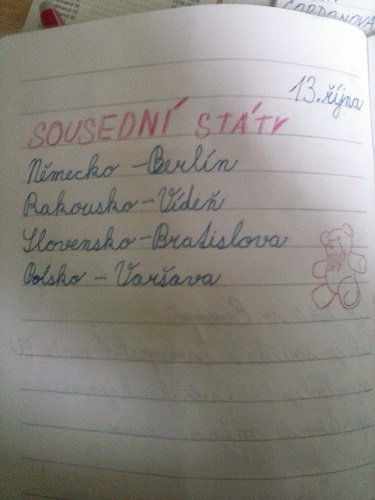 GORDONOVA
13. října
SOUSEDNÍ STÁTY
Německo - Berlín
Rakousko - Vídeň
Slovensko - Bratislava
Polsko - Varšava